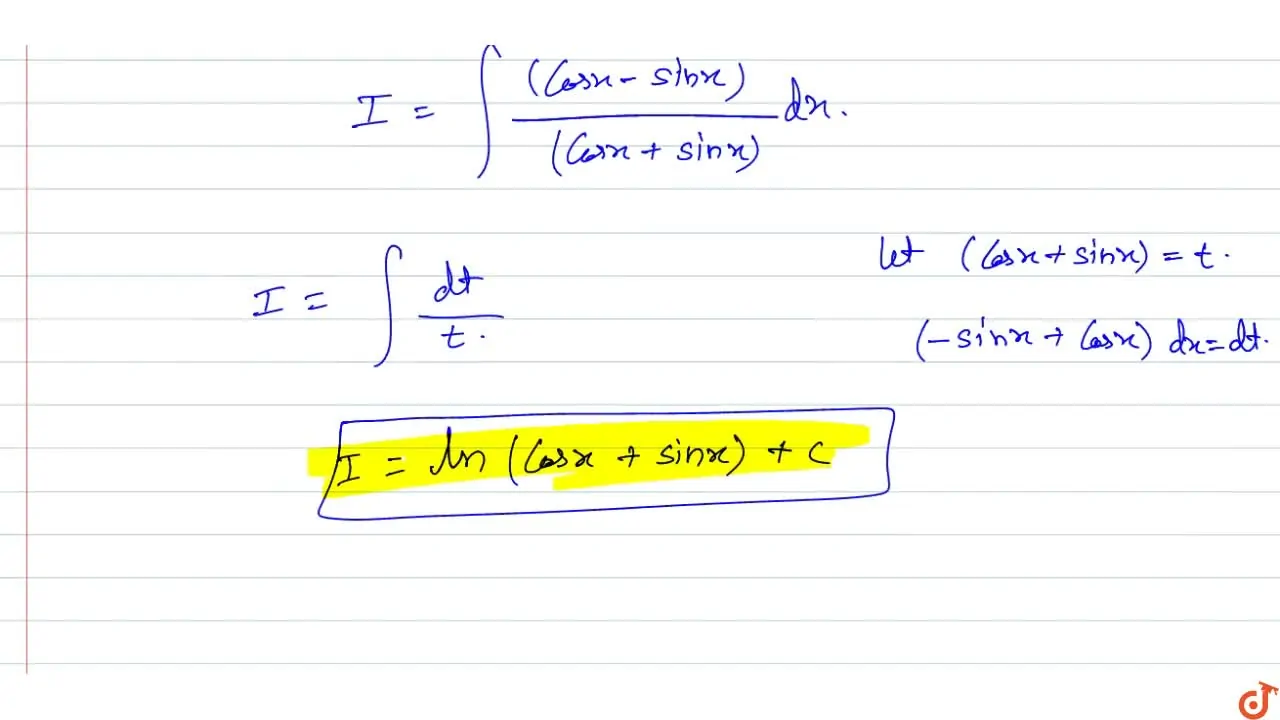 I = ∫ (Cosx - sinx) / (Cosx + sinx) dx.
I = ∫ dt / t.
let (Cosx + sinx) = t.
(-sinx + Cosx) dx = dt.
I = ln (Cosx + sinx) + c